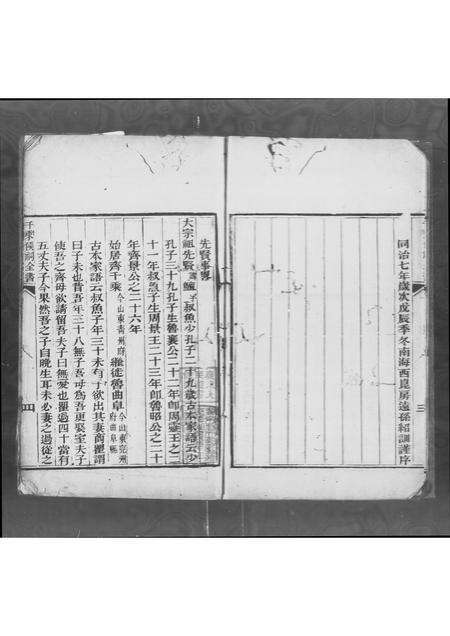 同治七年歲次戊辰季冬南海西昆房遠孫紹訓謹序
三
先賢事畧
大宗祖先賢諱鱣字叔魚少孔子二十九歲古本家語云少
孔子三十九孔子生魯襄公二十二年卽周靈王之二
十一年叔魚子生周景王二十三年卽魯昭公之二十
年齊景公之二十六年
始居齊千乘今山東青州府繼徙魯曲阜今山東兗州府曲阜縣
古本家語云叔魚子年三十未有子欲出其妻商瞿謂
曰子未也昔吾年三十八無子吾母爲吾更娶室夫子
使吾之齊母欲請留吾夫子曰無憂也瞿過四十當有
五丈夫子今果然吾之子自晚生耳未必妻之過從之
千乘侯祠全書
四